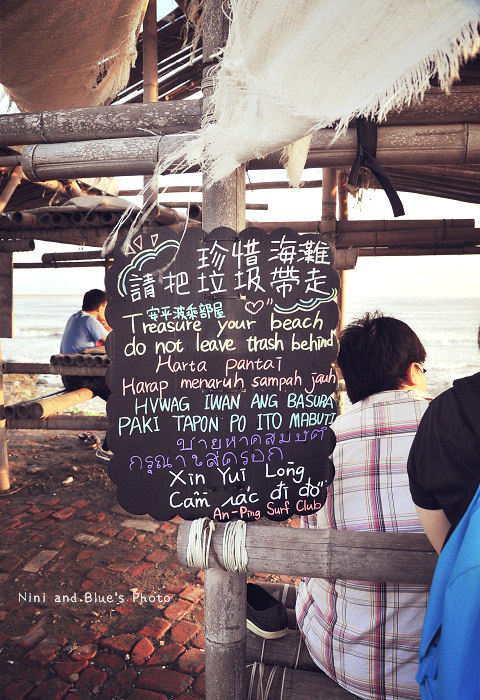 珍惜海灘
請把垃圾帶走
安平波乘部屋
Treasure your beach
do not leave trash behind
Harta pantai
Harap menaruh sampah jauh
HVWAG IWAN ANG BASURA
PAKI TAPON PO ITO MABUTI
ชายหาดสมบัติ
กรุณาใส่ครอก
Xin Yui Lòng
Cấm rác đi đổ
An-Ping Surf Club
Nini and Blue's Photo